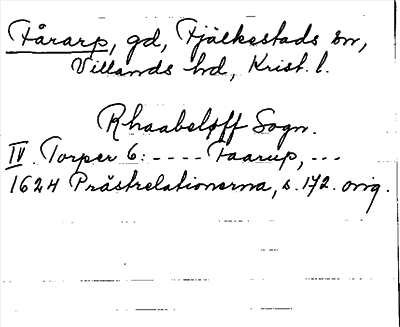 Fårarp, gd, Fjälkestads sn,
Villands hd, Krist. l.
Rhaabeløff Sogn.
IV. Torper 6: ---- Faarup, ---
1624 Prästrelationerna, s. 172. orig.